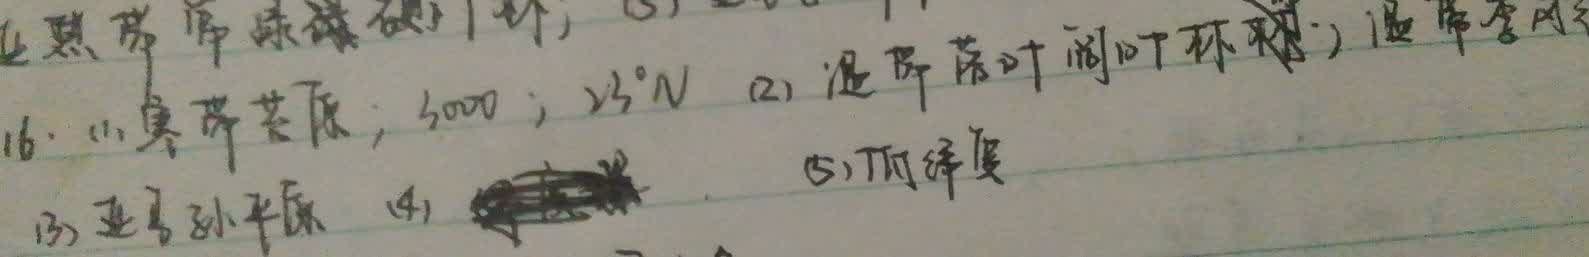 亚热带常绿硬叶林; (3)
16. (1) 寒带苔原; 3000; 23°N (2) 温带落叶阔叶林; 温带季风
(3) 亚马孙平原 (4) (5) 纬度